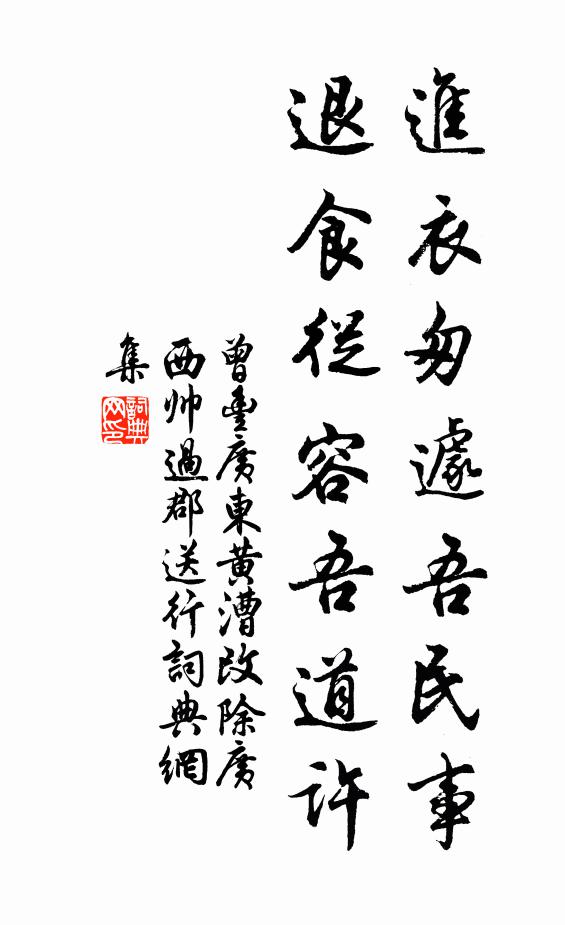 進衣匆遽吾民事
退食從容吾道許
曾豐廣東黄漕改除廣
西帅過郡送行詞典網
集
詞典
网印